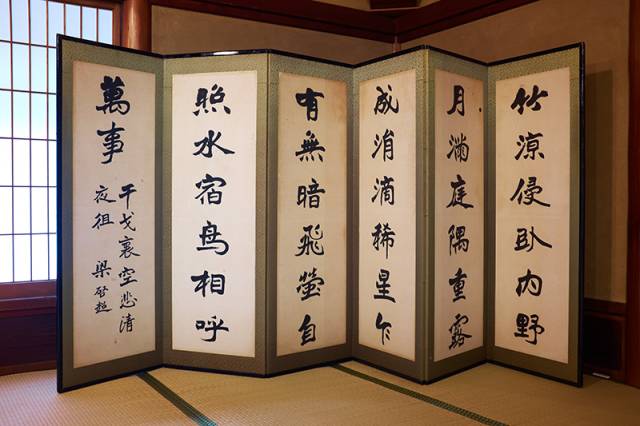 竹涼侵臥內野
月滿庭隅重露
成涓滴稀星乍
有無暗飛螢自
照水宿鳥相呼
萬事
干戈裏空悲清
夜徂 梁啓超